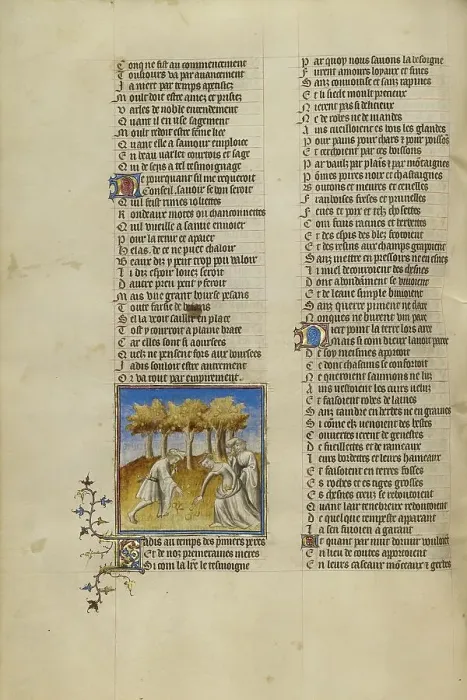 Conque fist au commencement
Tousiours va par auancement
Ja mert par temps
Moult doit estre amez et prisiez
Varles de noble entendement
Quant il en use sagement
Moult redoit estre feme lice
Quant elle a samour emploie
En beau varlet courtois et sage
Qui de sens a tel tesmoignage
e pourquant sil me requeroit
Conseil sauoir se bon seroit
Quil feist rimes iolietes
Rondeaux motes ou chanconnettes
Quil vueille a samie enuoier
Pour la tenir et apaier
Helas de ce ne puet chaloir
Beaux diz y puet trop pou valoir
Li diz espoir louez seroit
Dautre preu petit y seroit
Mais une grant bourse pesans
Toute farsie de besans
Sel la veoit saillir en place
Tost y courroit a plaine brace
Car elles sont si aoursees
Quelz ne pensent fors aux boursees
Jadis souloit estre autrement
Or va tout par empirement
adis au temps des premiers peres
Et de noz premeraines meres
Si com la lre le tesmoigne
Par quoy nous sauons la besoigne
Furent amours loyaux et fines
Sanz couuoitise et sanz rapines
Et li siecle moult precieux
Nierent pas si delicieux
Ne de robes ne de uiandes
Ains cueilloient es bois les glandes
Pour pains pour chars et pour poissons
Et cerchoient par ces buissons
Par vaulx par plains et par montaignes
Pommes poires noix et chastaignes
Boutons et meures et cenelles
Framboises freses et prunelles
Feues et pois et telz chosettes
Com fruis racines et herbettes
Et des espis des blez frotoient
Et des resins aux champs grapoient
Sanz mettre en pressoirs ne en esnes
Li miel decouroient des chesnes
Dont abondament se viuoient
Et de leaue simple buuoient
Sanz querre piment ne clare
Nonques ne burent vin pare
iert point la terre lors aree
mais si com dieux lauoit paree
De soy meismes aportoit
Ce dont chascuns se confortoit
Ne queroient saumons ne luz
Ains vestoient les cuirs veluz
Et faisoient robes de laines
Sanz taindre en herbes ne en graines
Si comme elz venoient des bestes
Couuertes ierent de genestes
De fueillettes et de rameaux
Leurs bordettes et leurs hameaux
Et faisoient en terres fosses
Es roches et es tiges grosses
Es chesnes creux se reboutoient
Quant lair tenebreux redoutoient
De quelque tempeste apparant
La sen fuioient a garant
Et quant par nuit dormir vouloient
En lieu de coutes aportoient
En leurs caseaux monceaux et gerbes